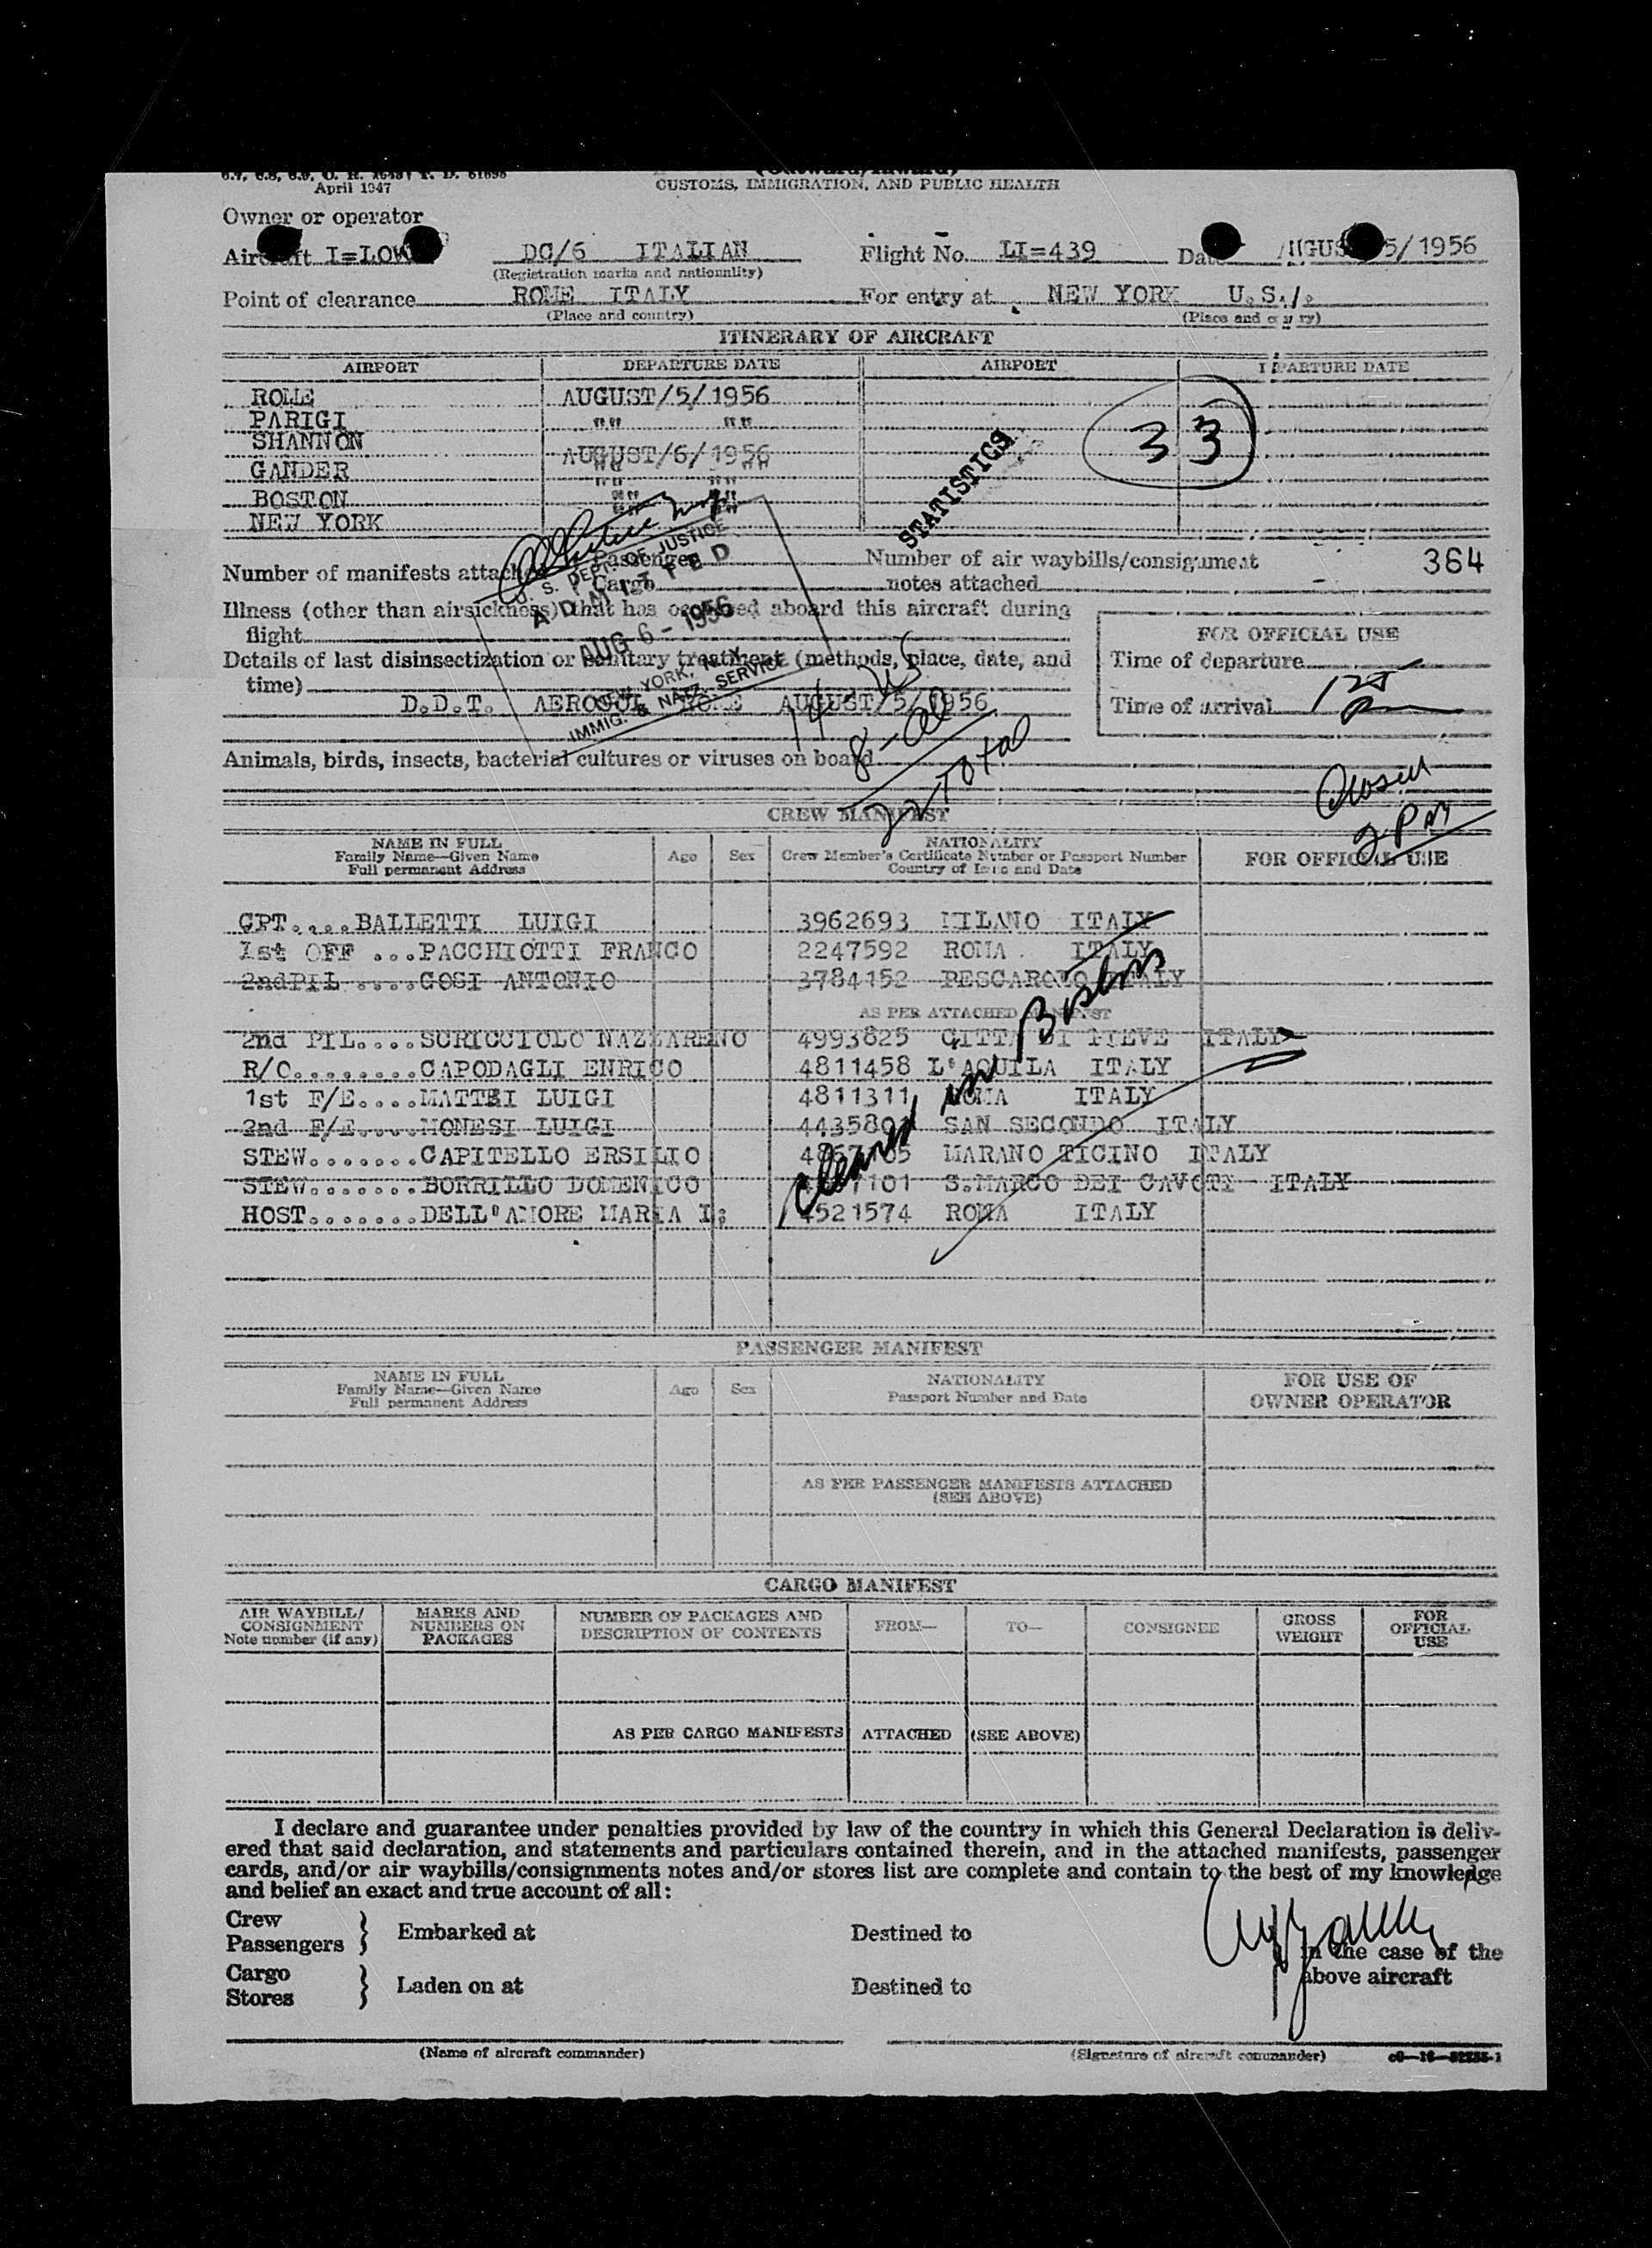 April 1947
CUSTOMS, IMMIGRATION, AND PUBLIC HEALTH
Owner or operator
Aircraft I=LOW DC/6 ITALIAN Flight No. LI=439 Date AUGUST 5/1956
(Registration marks and nationality)
Point of clearance ROME ITALY For entry at NEW YORK U.S.
(Place and country) (Place and country)
ITINERARY OF AIRCRAFT
AIRPORT DEPARTURE DATE AIRPORT DEPARTURE DATE
ROME AUGUST/5/1956
PARIGI "" ""
SHANNON AUGUST/6/1956
GANDER "" ""
BOSTON "" ""
NEW YORK "" ""
33
STATISTICS
Number of manifests attached Passenger Number of air waybills/consignment 364
Cargo notes attached
U. S. DEPT. OF JUSTICE
ADMITTED
AUG 6 - 1956
NEW YORK, N. Y.
IMMIG. & NATZ. SERVICE
Illness (other than airsickness) that has occurred aboard this aircraft during
flight
Details of last disinsectization or sanitary treatment (methods, place, date, and
time)
D.D.T. AEROSOL ROME AUGUST/5/1956
FOR OFFICIAL USE
Time of departure
Time of arrival 125 pm
14 US
8-al
22 Total
Animals, birds, insects, bacterial cultures or viruses on board
Closed
2 PM
CREW MANIFEST
NAME IN FULL Age Sex NATIONALITY FOR OFFICIAL USE
Family Name—Given Name Crew Member's Certificate Number or Passport Number
Full permanent Address Country of Issue and Date
CPT....BALLETTI LUIGI 3962693 MILANO ITALY
1st OFF ...PACCHIOTTI FRANCO 2247592 ROMA ITALY
2ndPIL .....GOSI ANTONIO 3784152 PESCAROLO ITALY
AS PER ATTACHED MANIFEST
2nd PIL....SCRICCIOLO NAZZARENO 4993825 CITTA DI PIEVE ITALY
R/O........CAPODAGLI ENRICO 4811458 L'AQUILA ITALY
1st F/E....MATTEI LUIGI 4811311 ROMA ITALY
2nd F/E....MONESI LUIGI SAN SECONDO ITALY
STEW.......CAPITELLO ERSILIO MARANO TICINO ITALY
STEW.......BORRILLO DOMENICO S.MARCO DEI CAVOTI ITALY
HOST.......DELL'AMORE MARIA I; 4521574 ROMA ITALY
Cleared in Boston
PASSENGER MANIFEST
NAME IN FULL Age Sex NATIONALITY FOR USE OF
Family Name—Given Name Passport Number and Date OWNER OPERATOR
Full permanent Address
AS PER PASSENGER MANIFESTS ATTACHED
(SEE ABOVE)
CARGO MANIFEST
AIR WAYBILL/ MARKS AND NUMBER OF PACKAGES AND FROM— TO— CONSIGNEE GROSS FOR
CONSIGNMENT NUMBERS ON DESCRIPTION OF CONTENTS WEIGHT OFFICIAL
Note number (if any) PACKAGES USE
AS PER CARGO MANIFESTS ATTACHED (SEE ABOVE)
I declare and guarantee under penalties provided by law of the country in which this General Declaration is deliv-
ered that said declaration, and statements and particulars contained therein, and in the attached manifests, passenger
cards, and/or air waybills/consignments notes and/or stores list are complete and contain to the best of my knowledge
and belief an exact and true account of all:
Crew
Passengers } Embarked at Destined to in the case of the
above aircraft
Cargo
Stores } Laden on at Destined to
(Name of aircraft commander) (Signature of aircraft commander)